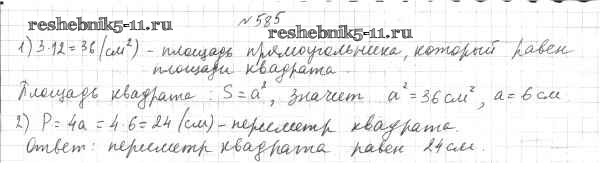 №585
reshebnik5-11.ru reshebnik5-11.ru
1) 3·12=36 (см²) - площадь прямоугольника, который равен
площади квадрата
Площадь квадрата: S=a², значит a²=36 см², a=6 см.
2) P=4a=4·6=24 (см) - периметр квадрата.
Ответ: периметр квадрата равен 24 см.